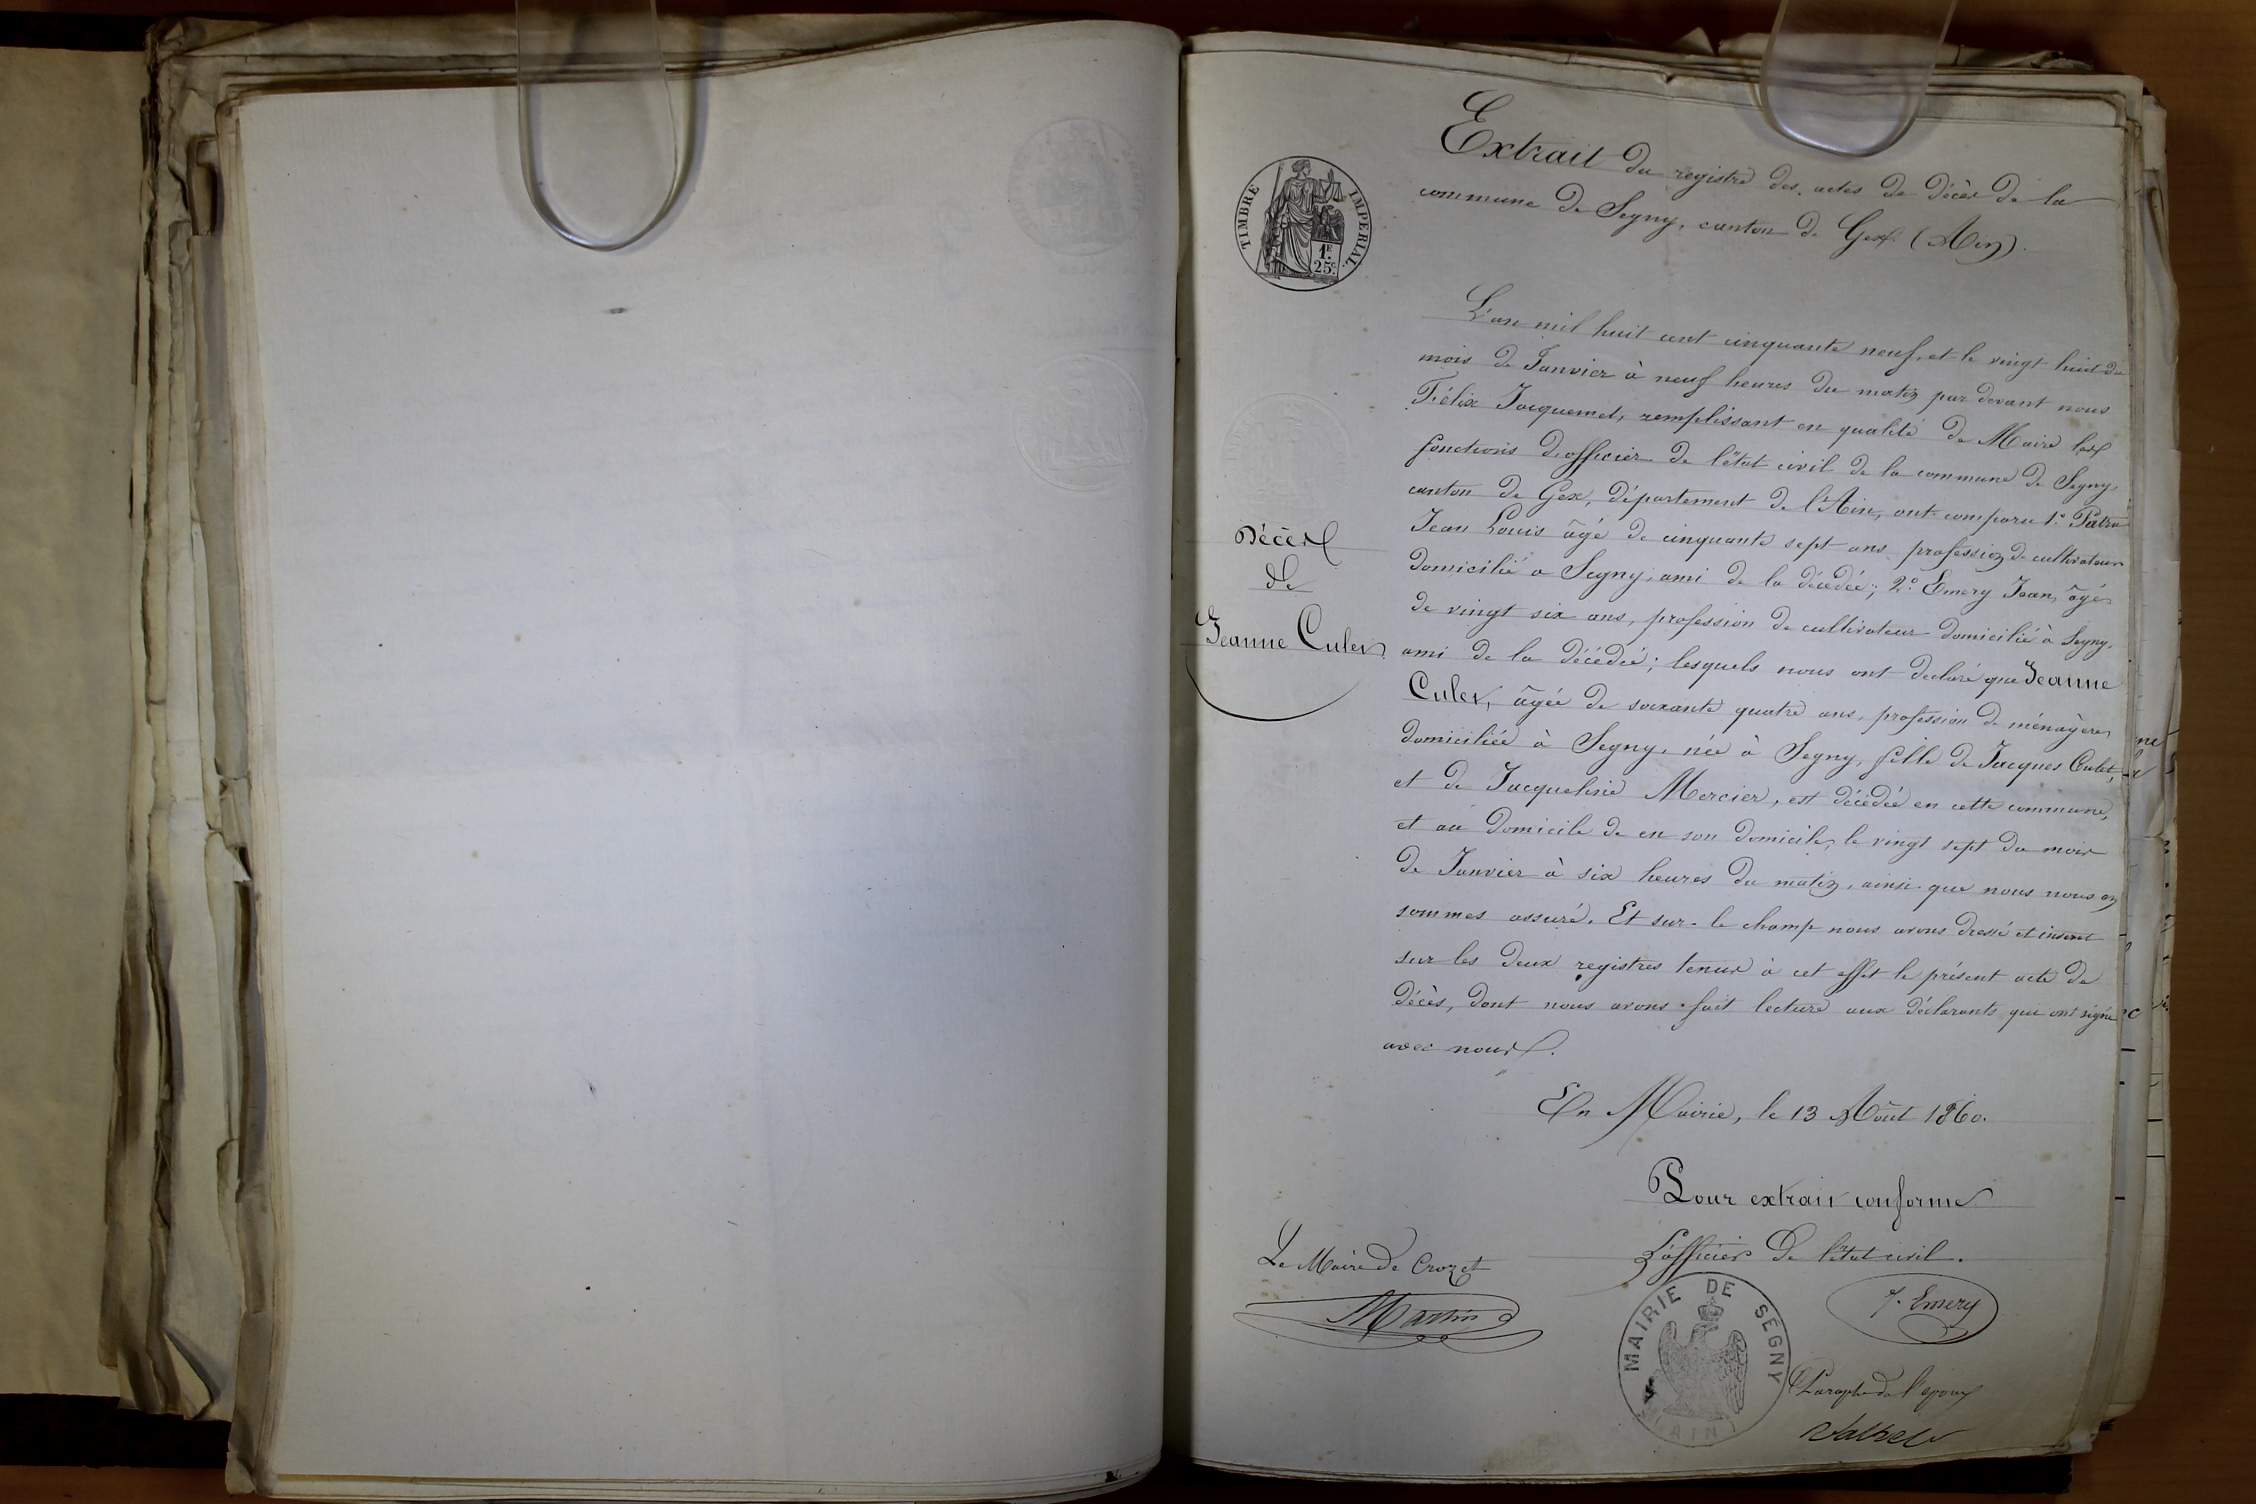 Extrait du registre des actes de décès de la
commune de Segny, canton de Gex (Ain).
TIMBRE IMPERIAL
1F.
25c.
L'an mil huit cent cinquante neuf, et le vingt huit du
mois de Janvier à neuf heures du matin par devant nous
Félix Jacquemet, remplissant en qualité de Maire les
fonctions d'officier de l'état civil de la commune de Segny,
canton de Gex, département de l'Ain, ont comparu 1.°
Jean Louis âgé de cinquante sept ans profession de cultivateur
domicilié a Segny, ami de la décédée; 2.° Emery Jean, âgé
de vingt six ans, profession de cultivateur domicilié à Segny,
ami de la décédée; lesquels nous ont declaré que Jeanne
Culet, âgée de soixante quatre ans, profession de ménagère
domiciliée à Segny, née à Segny, fille de Jacques Culet,
et de Jacqueline Mercier, est décédée en cette commune,
et au domicile de en son domicile, le vingt sept du mois
de Janvier à six heures du matin, ainsi que nous nous en
sommes assuré. Et sur-le champ nous avons dressé et inséré
sur les deux registres tenus à cet effet le présent acte de
décès, dont nous avons fait lecture aux déclarants qui ont signé
avec nous.
Décès
de
Jeanne Culet
En Mairie, le 13 Août 1860.
Pour extrait conforme
L'officier de l'état civil.
J. Emery
Le Maire de Crozet
Martin
MAIRIE DE SÉGNY
(AIN)
Paraphe de l'époux